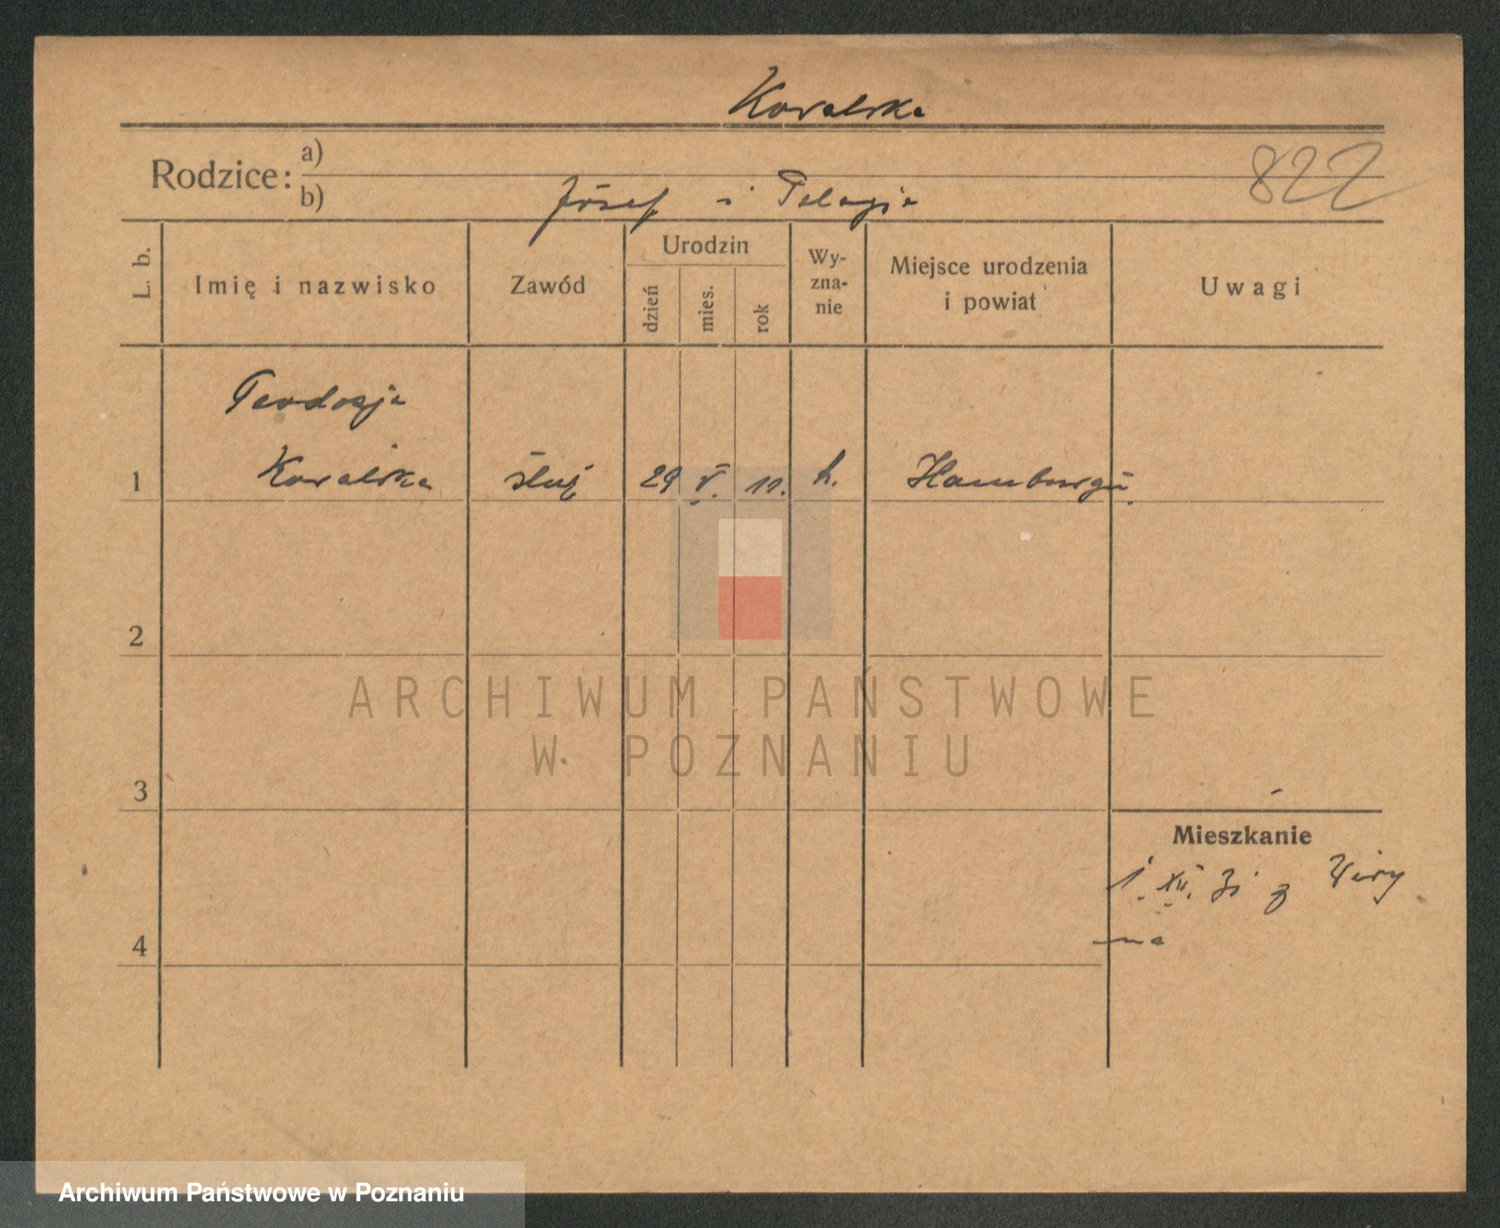 Kowalska
Rodzice: a)
822
b) Józef i Pelagja
L. b.
Imię i nazwisko
Zawód
Urodzin
dzień
mies.
rok
Wy-
zna-
nie
Miejsce urodzenia
i powiat
Uwagi
Teodozja
1 Kowalska służ 29 V. 11. k. Hamburgu
2
ARCHIWUM PAŃSTWOWE
W POZNANIU
3
Mieszkanie
1. XII. 31 z Wiry
na
4
Archiwum Państwowe w Poznaniu